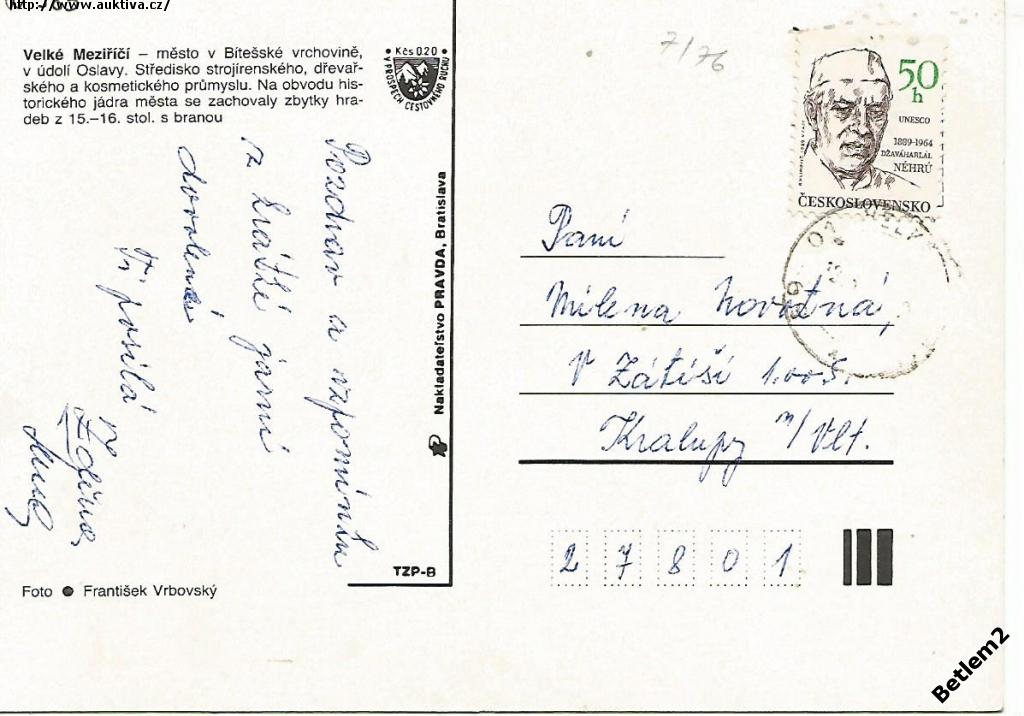 http://www.auktiva.cz/
Velké Meziříčí – město v Bítešské vrchovině,
v údolí Oslavy. Středisko strojírenského, dřevař-
ského a kosmetického průmyslu. Na obvodu his-
torického jádra města se zachovaly zbytky hra-
deb z 15.–16. stol. s branou
• Kčs 0.20 •
V PROSPĚCH CESTOVNÉHO RUCHU
Pozdrav a vzpomínku
z krátké jarní
dovolené
Ti posílá
Nakladateľstvo PRAVDA, Bratislava
TZP-B
Foto ● František Vrbovský
7/76
50
h
UNESCO
1889-1964
DŽAVÁHARLÁL
NÉHRÚ
ČESKOSLOVENSKO
Paní
Milena Novotná,
V Zátiší 1005.
Kralupy n/Vlt.
2 7 8 0 1
Betlem2